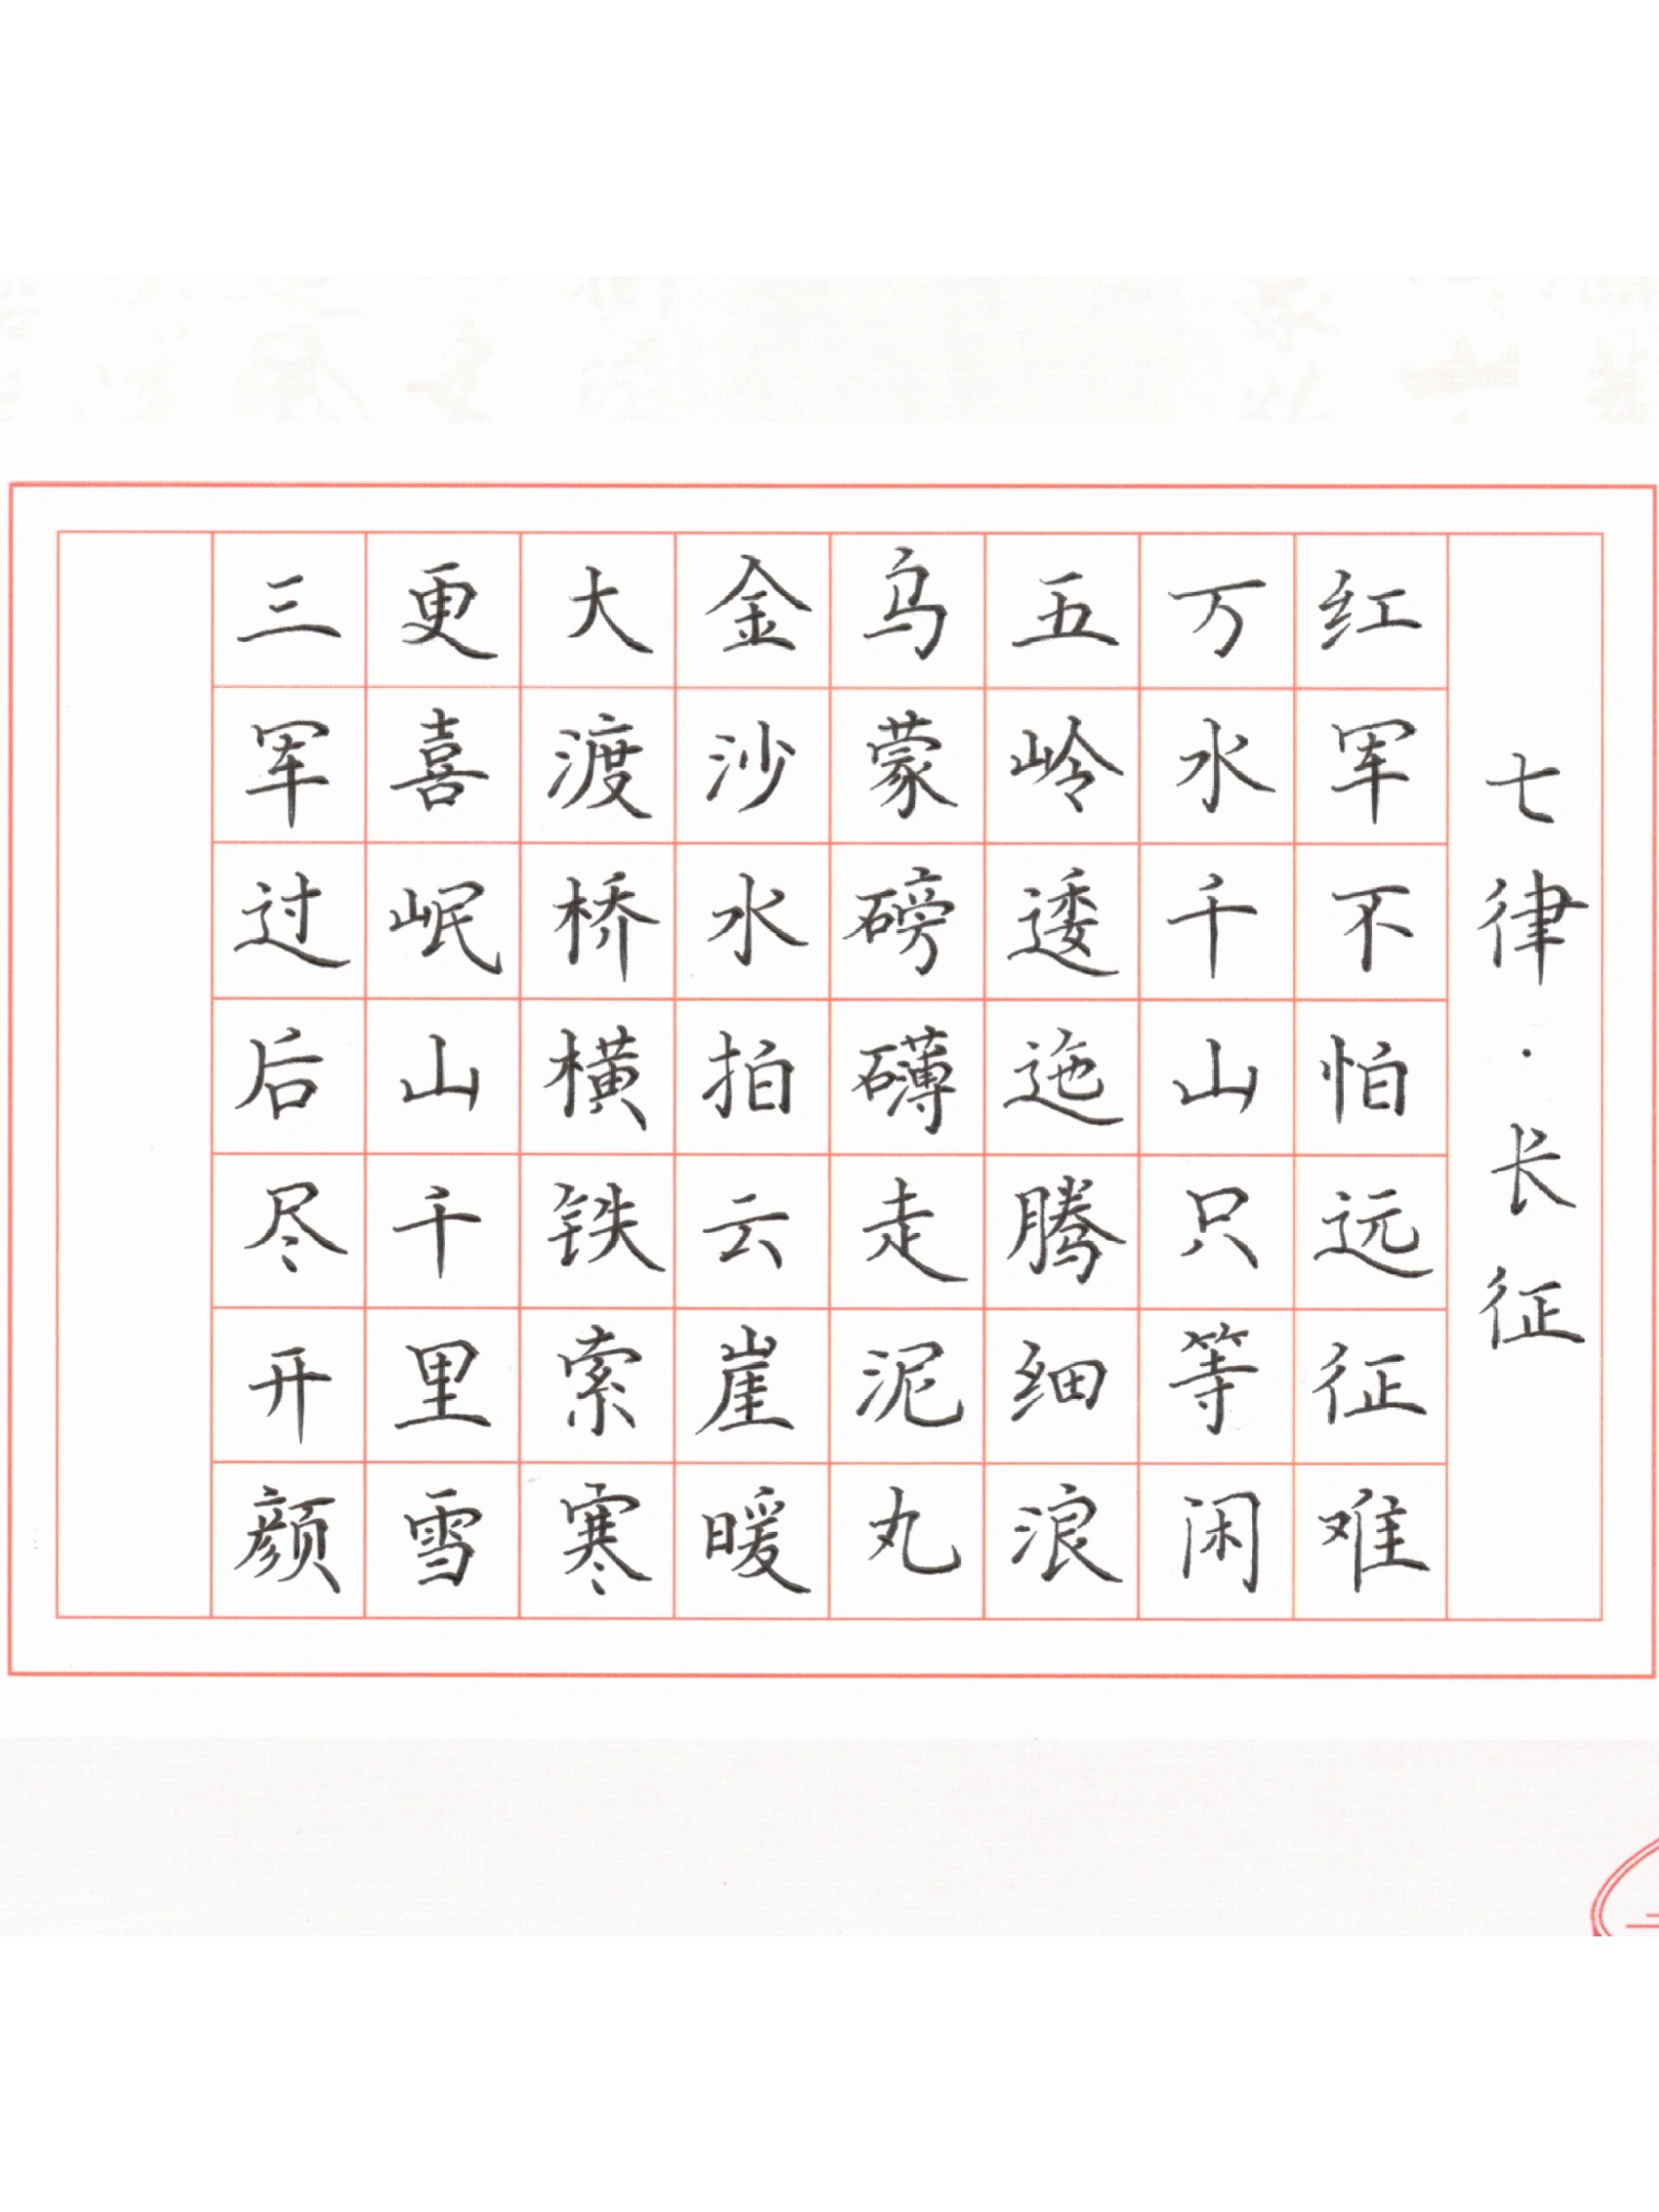 七律·长征
红军不怕远征难
万水千山只等闲
五岭逶迤腾细浪
乌蒙磅礴走泥丸
金沙水拍云崖暖
大渡桥横铁索寒
更喜岷山千里雪
三军过后尽开颜